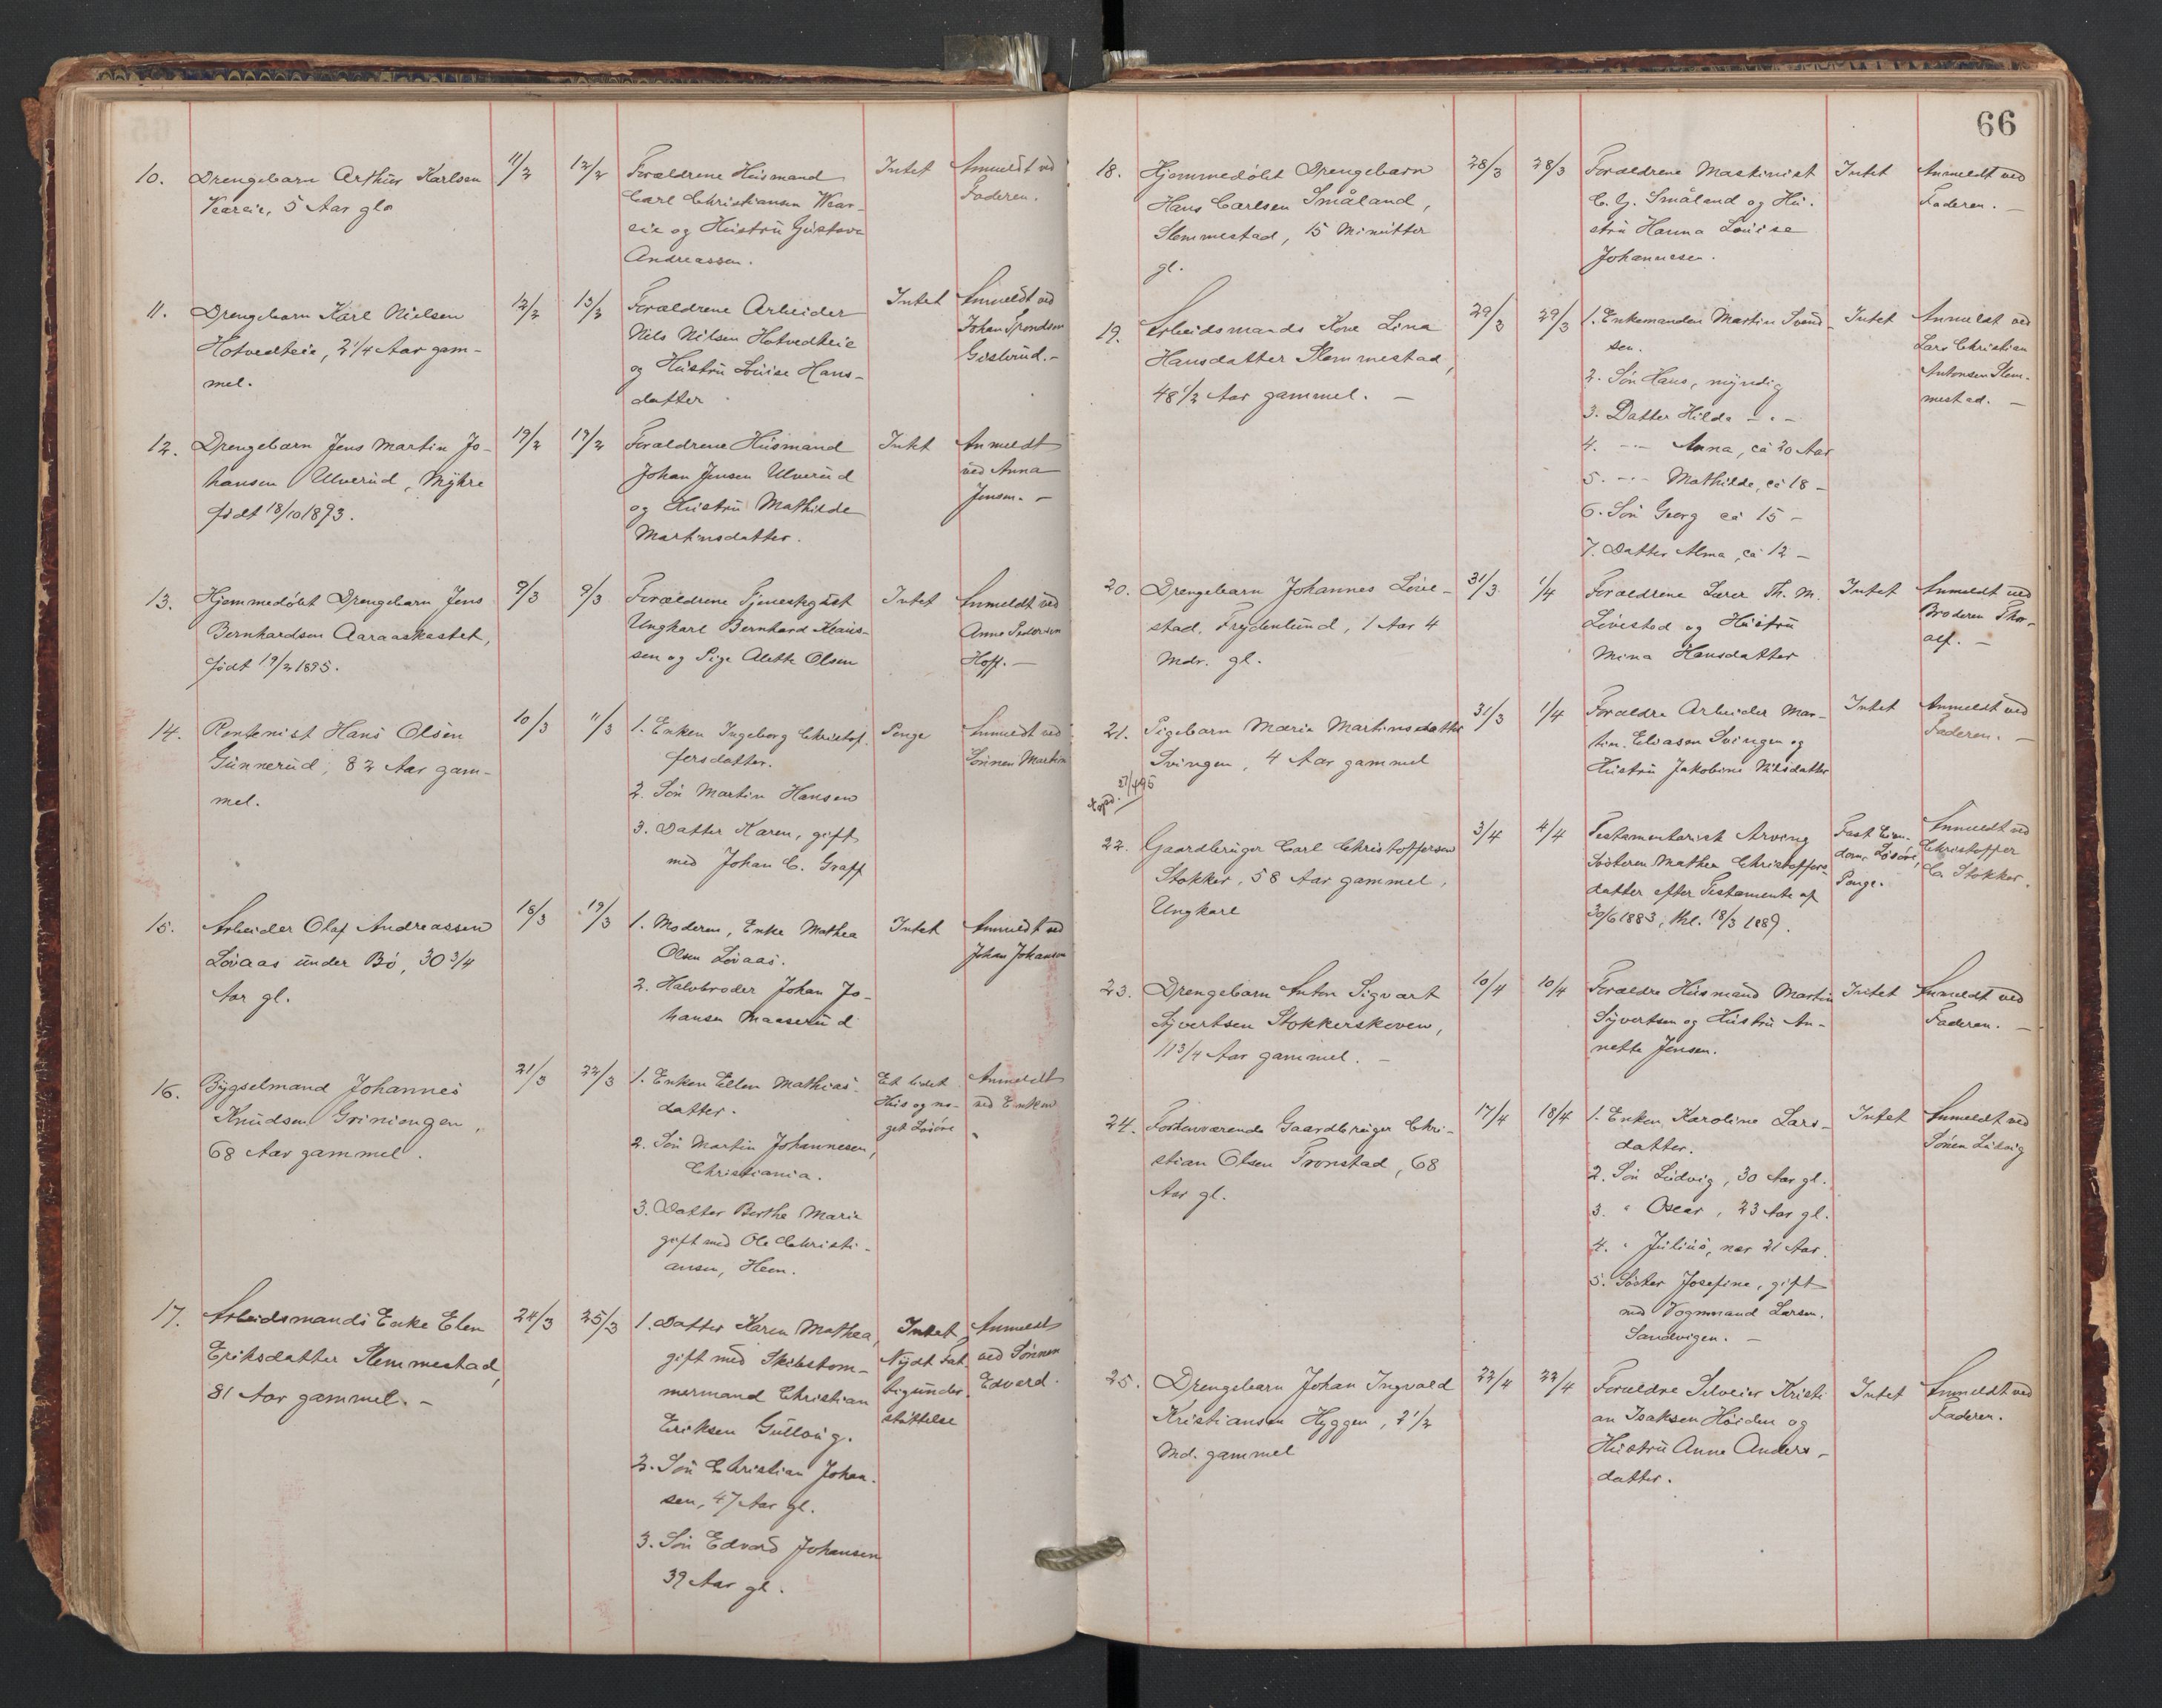 66
10. Drengebarn Arthur Karlsen 11/2 12/2 Forældrene Husmand Intet Anmeldt ved
5 Aar gl. Carl Christiansen Faderen.
og Hustru Gustava
Andreassen.
11. Drengebarn Karl Nielsen 12/2 13/2 Forældrene Arbeider Intet Anmeldt ved
Hotvedteie, 2 1/4 Aar gam- Nils Nilsen Hotvedteie Johan
mel. og Hustru Louise Hans-
datter
12. Drengebarn Jens Martin Jo- 19/2 19/2 Forældrene Husmand Intet Anmeldt
hansen Ulverud, Myhre Johan Jensen Ulverud ved Anna
født 18/10 1893. og Hustru Mathilde Jensen. -
Martinsdatter.
13. Hjemmedøbt Drengebarn Jens 9/3 9/3 Forældrene Tjenestegut Intet Anmeldt ved
Bernhardsen Aaraaskastet, Ungkarl Bernhard Klaus- Anne Pedersen
født 19/2 1895. sen og Pige Alette Olsen Hoff. -
14. Rentenist Hans Olsen 10/3 11/3 1. Enken Ingeborg Christof- Penge Anmeldt ved
Gunnerud, 82 Aar gam- fersdatter. Sønnen Martin
mel. 2. Søn Martin Hansen
3. Datter Karen, gift
med Johan C. Graff
15. Arbeider Olaf Andreassen 18/3 19/3 1. Moderen, Enke Mathea Intet Anmeldt ved
Løvaas under Bø, 30 3/4 Olsen Løvaas. Johan Johansen
Aar gl. 2. Halvbroder Johan Jo-
hansen Maaserud
16. Bygselmand Johannes 21/3 22/3 1. Enken Ellen Mathias- Et lidet Anmeldt
Knudsen Griningen, datter. Hus og no- ved Enken
68 Aar gammel. 2. Søn Martin Johannesen, get Løsøre
Christiania.
3. Datter Berthe Marie
gift med Ole Christi-
ansen, Heen.
17. Arbeidsmands Enke Elen 24/3 25/3 1. Datter Karen Mathea, Intet Anmeldt
Eriksdatter Slemmestad, gift med Skibstøm- Nydt Fat- ved Sønnen
81 Aar gammel. - mermand Christian tigunder- Edvard.
Eriksen Gullaug. støttelse
2. Søn Christian Johan-
sen, 47 Aar gl.
3. Søn Edvard Johansen
39 Aar gl.
18. Hjemmedøbt Drengebarn 28/3 28/3 Forældrene Maskinist Intet Anmeldt ved
Hans Carlsen Småland, C. G. Småland og Hu- Faderen. -
Slemmestad, 15 Minutter stru Hanna Louise
gl. Johannesen.
19. Arbeidsmands Kone Lina 29/3 29/3 1. Enkemanden Martin Svend- Intet Anmeldt ved
Hansdatter Slemmestad, sen. Lars Christian
48 1/2 Aar gammel. - 2. Søn Hans, myndig Antonsen Slem-
3. Datter Hilda - " - mestad. -
4. - " - Anna, ca 20 Aar
5. - " - Mathilde, ca 18 -
6. Søn Georg ca 15 -
7. Datter Alma, ca 12 -
20. Drengebarn Johannes Løve- 31/3 1/4 Forældrene Lærer Th. M. Intet Anmeldt ved
stad, Frydenlund, 1 Aar 4 Løvestad og Hustru Broderen Thor-
Mdr. gl. Mina Hansdatter alf. -
21. Pigebarn Marie Martinsdatter 31/3 1/4 Forældre Arbeider Mar- Intet Anmeldt ved
Svingen, 4 Aar gammel tin Eliasen Svingen og Faderen. -
Hustru Jakobine Nilsdatter
27/4 95
22. Gaardbruger Carl Christoffersen 3/4 4/4 Testamentarisk Arving Fast Eien- Anmeldt ved
Stokker, 58 Aar gammel, Søsteren Mathea Christoffers- dom, Løsøre, Christoffer
Ungkarl datter efter Testamente af Penge. C. Stokker.
30/6 1883, thl. 18/3 1889.
23. Drengebarn Anton Sigvart 10/4 10/4 Forældre Husmand Martin Intet Anmeldt ved
Syvertsen Stokkerskoven, Syvertsen og Hustru An- Faderen. -
11 3/4 Aar gammel. - nette Jensen.
24. Forhenværende Gaardbruger Chri- 17/4 18/4 1. Enken Karoline Lars- Intet Anmeldt ved
stian Olsen Tronstad, 68 datter. Sønen Ludvig
Aar gl. 2. Søn Ludvig, 30 Aar gl.
3. " Oscar, 23 Aar gl.
4. " Julius, nær 21 Aar.
5. Søster Josefine, gift
med Vognmand Larsen.
Sandvigen. -
25. Drengebarn Johan Ingvald 22/4 22/4 Forældre Selveier Kristi- Intet Anmeldt ved
Kristiansen Hyggen, 2 1/2 an Isaksen Høiden og Faderen.
Md. gammel Hustru Anne Anders-
datter.